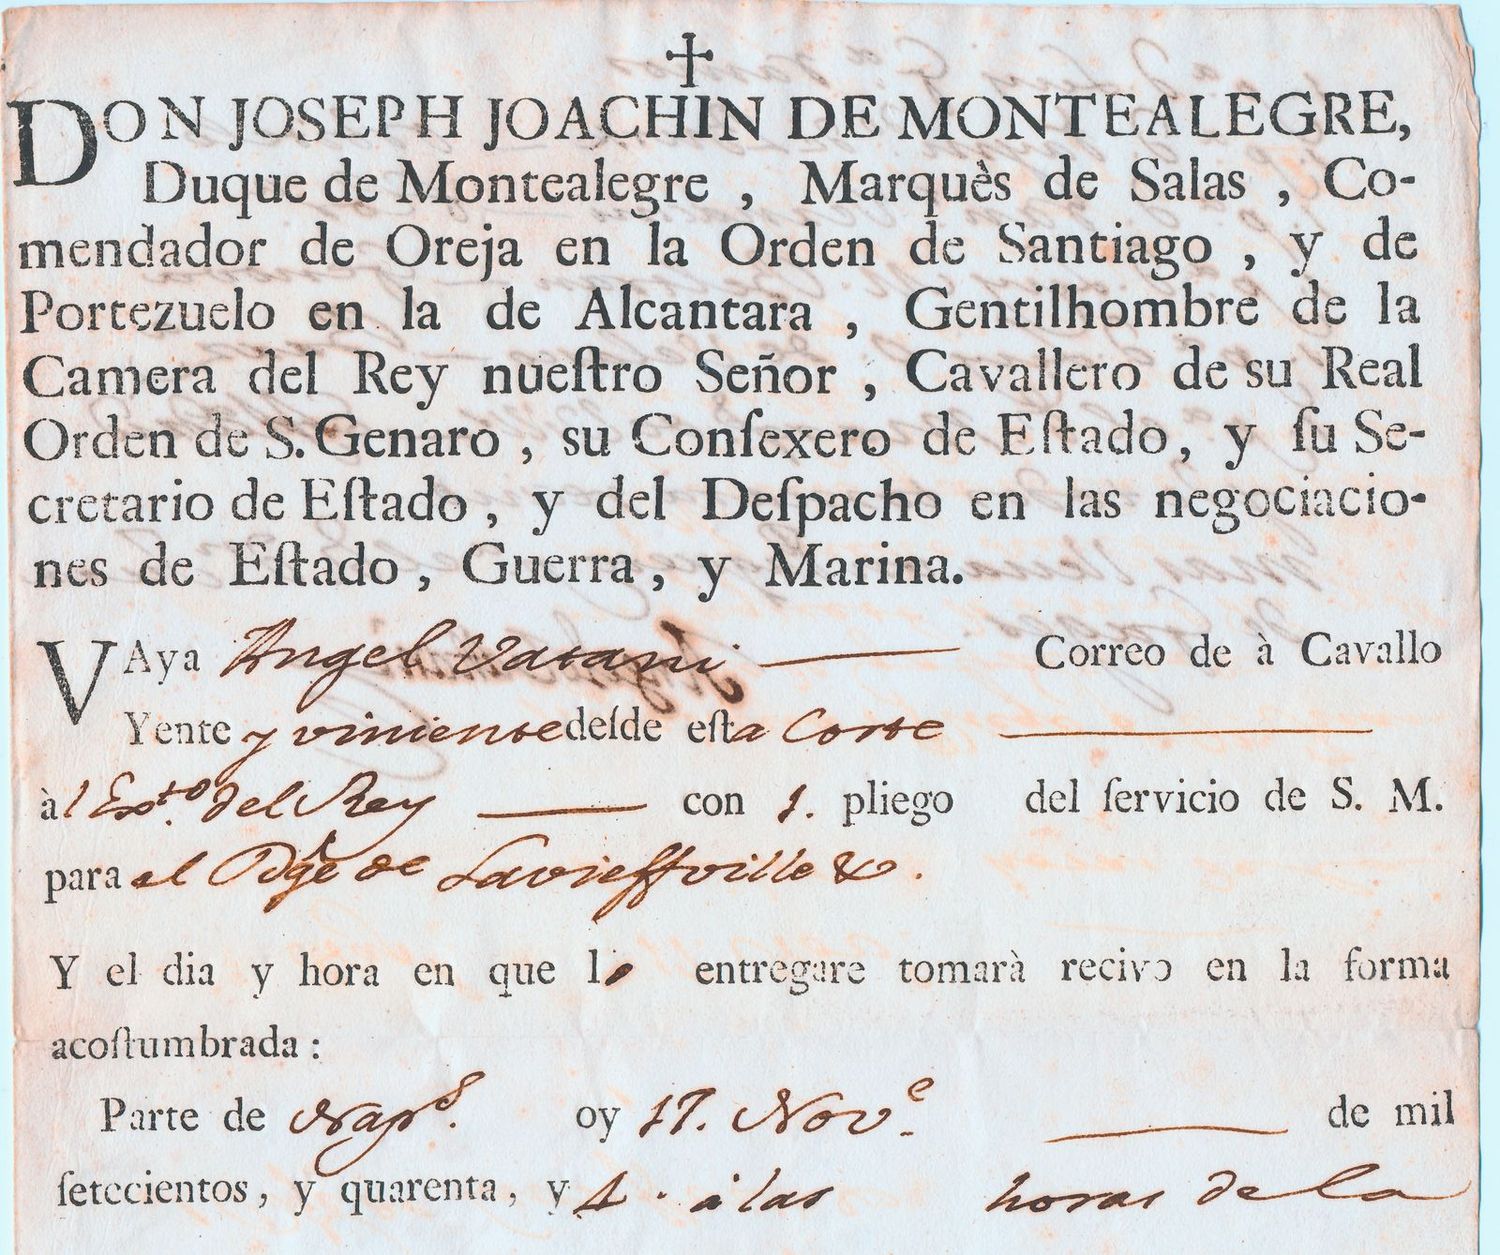 DON JOSEPH JOACHIN DE MONTEALEGRE,
Duque de Montealegre , Marquès de Salas , Co-
mendador de Oreja en la Orden de Santiago , y de
Portezuelo en la de Alcantara , Gentilhombre de la
Camera del Rey nueſtro Señor , Cavallero de su Real
Orden de S. Genaro , su Conſexero de Eſtado, y ſu Se-
cretario de Eſtado , y del Deſpacho en las negociacio-
nes de Eſtado , Guerra , y Marina.
VAya Angel Vatani Correo de à Cavallo
Yente y viniente deſde eſta Corte
àl Exto. del Rey con 1. pliego del ſervicio de S. M.
para el Dqe de Lavieffville &.
Y el dia y hora en que lo entregare tomarà recivo en la forma
acoſtumbrada :
Parte de Naps. oy 17. Nove. de mil
ſetecientos, y quarenta, y 4. à las horas de la